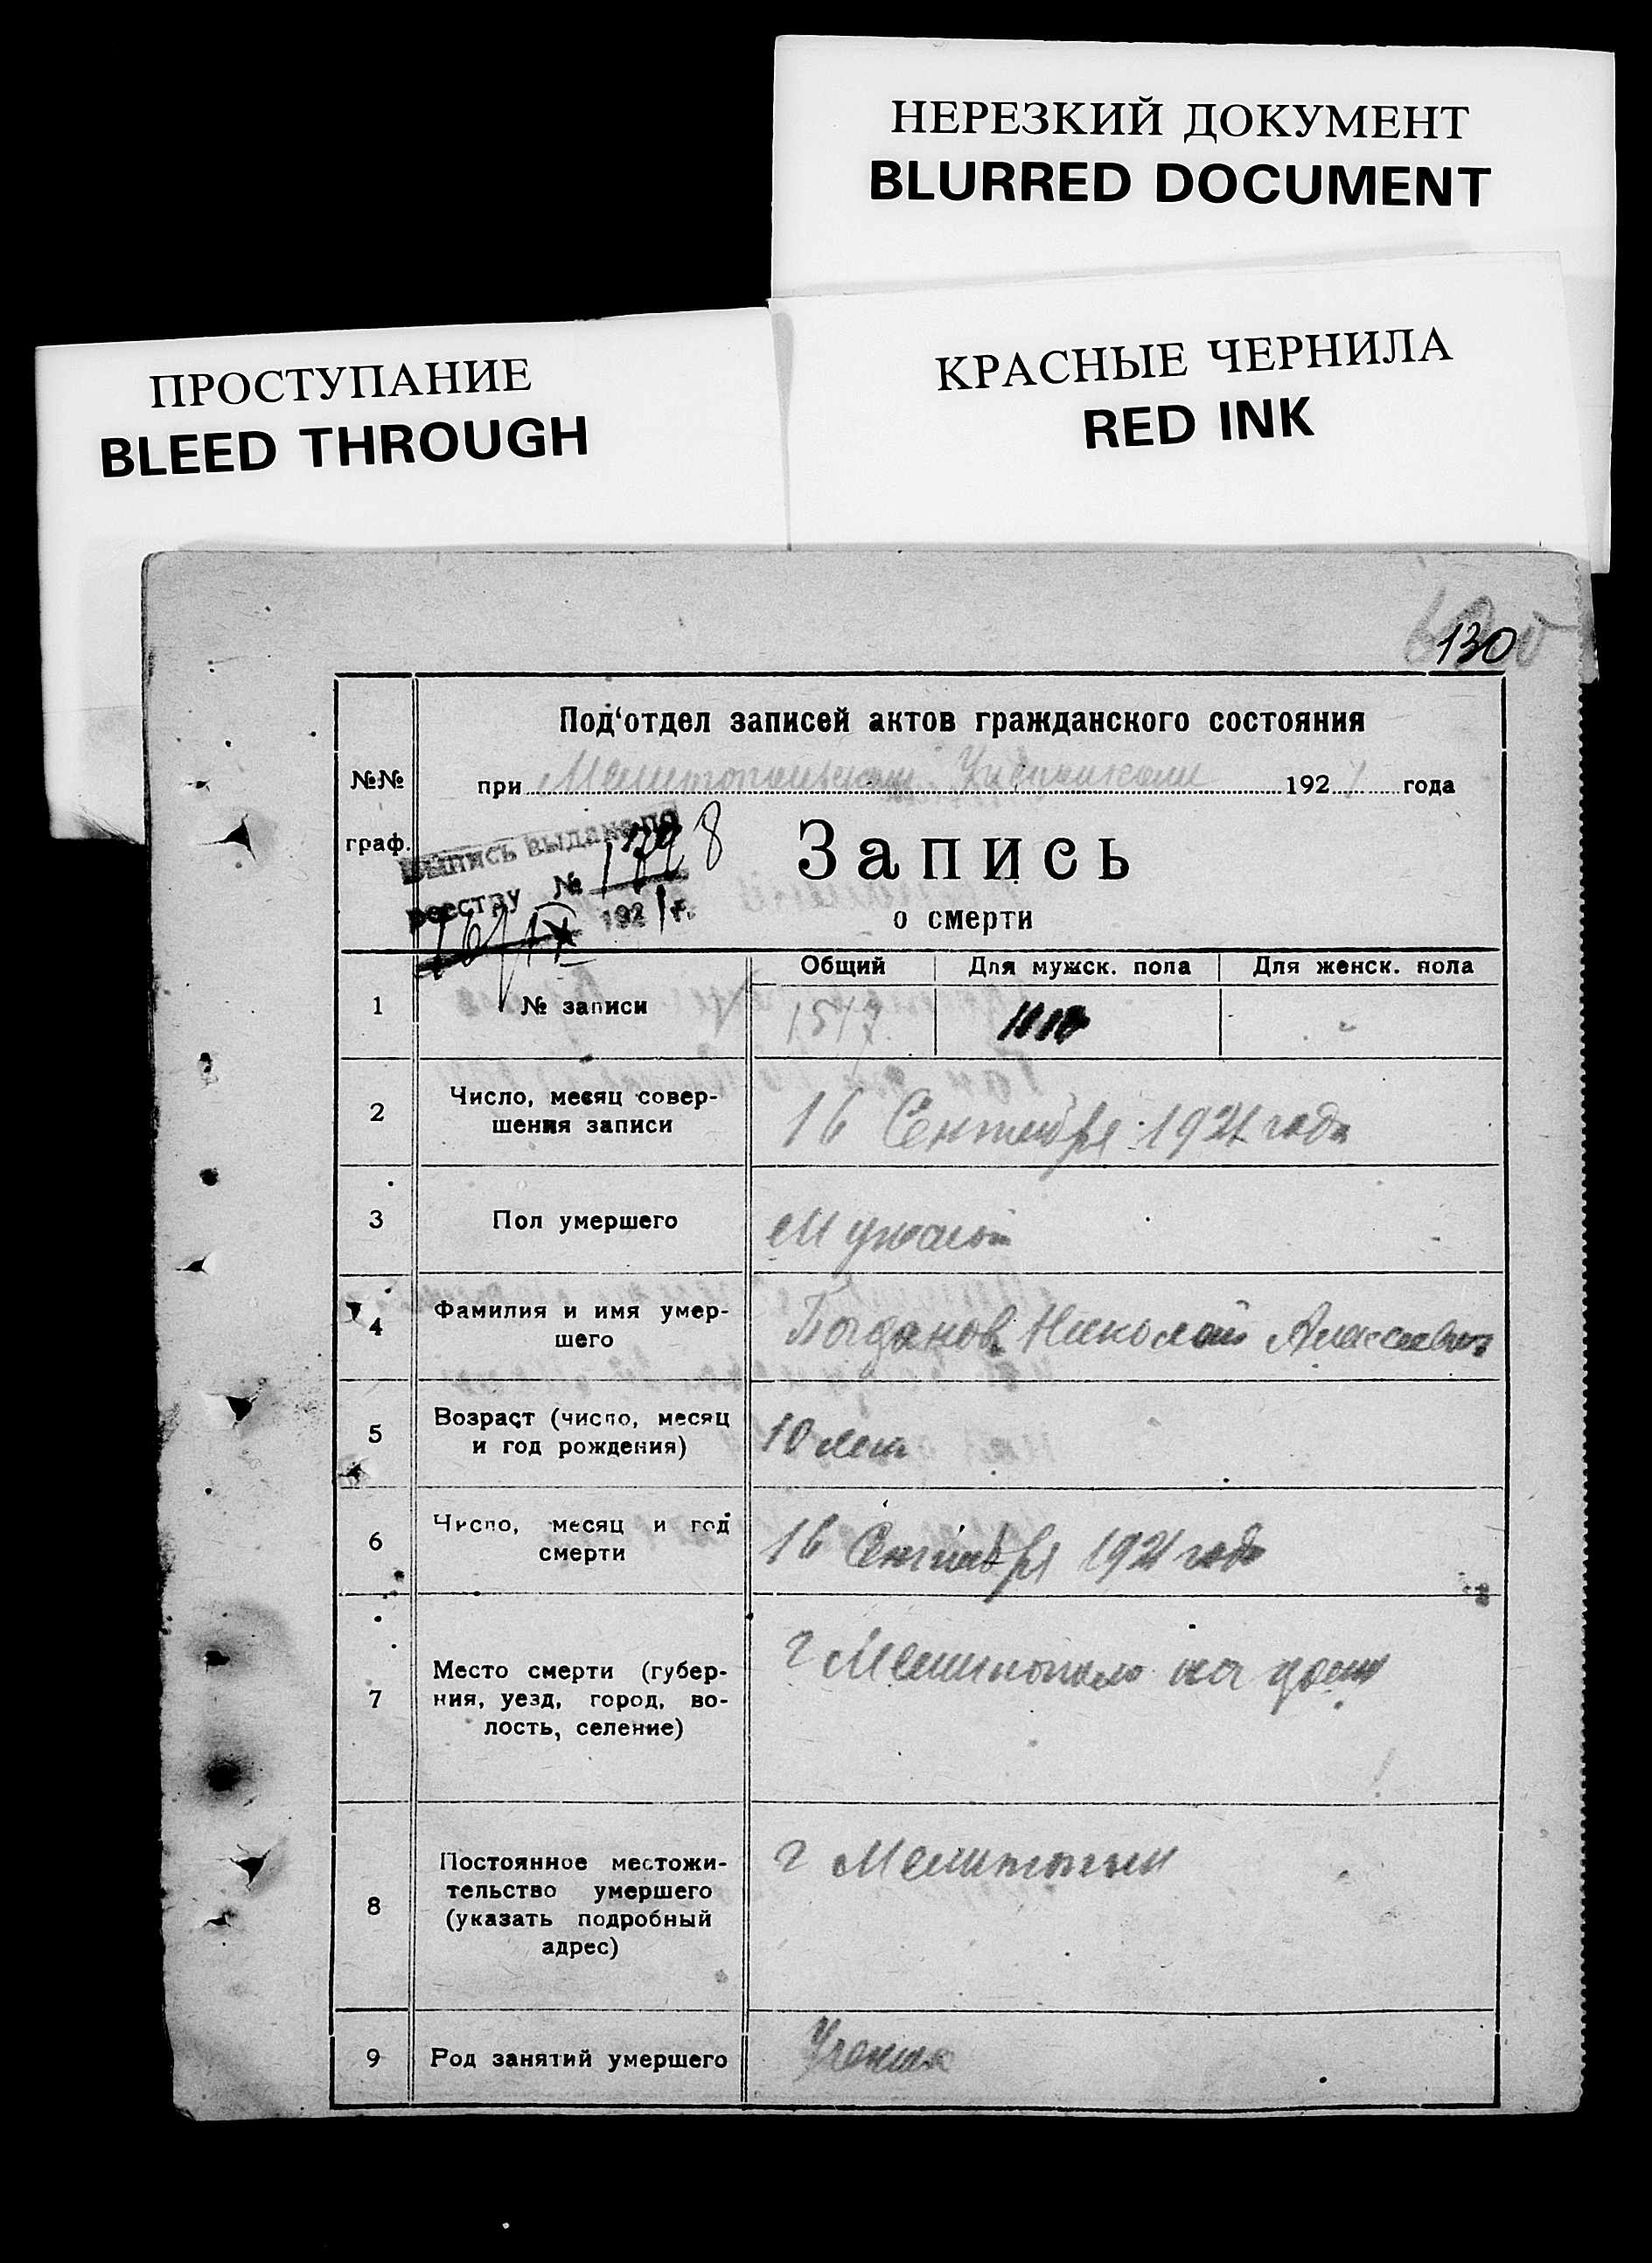 НЕРЕЗКИЙ ДОКУМЕНТ
BLURRED DOCUMENT
ПРОСТУПАНИЕ
BLEED THROUGH
КРАСНЫЕ ЧЕРНИЛА
RED INK
130
Под‘отдел записей актов гражданского состояния
№№ граф.
при 1921 года
Выпись выдана по
реестру №
16/IX 1921 г.
Запись
о смерти
Общий Для мужск. пола Для женск. пола
1 № записи 1517
2 Число, месяц совер-
шения записи 16 Сентября 1921 года
3 Пол умершего Мужской
4 Фамилия и имя умер-
шего Богданов Николай Алексеевич
5 Возраст (число, месяц
и год рождения) 10 лет
6 Число, месяц и год
смерти 16 Сентября 1921 года
7 Место смерти (губер-
ния, уезд, город, во-
лость, селение) г Мелитополь на дому
8 Постоянное местожи-
тельство умершего
(указать подробный
адрес) г Мелитополь
9 Род занятий умершего Ученик